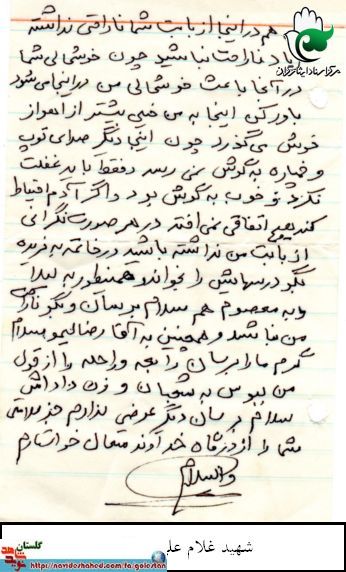 مرکز اسناد ایثارگران
هم در اینجا از بابت شما ناراحتی نداشته
باشد ناراحت نباشید چون خوشحالی شما
در آنجا باعث خوشحالی من در اینجا می شود
باور کن اینجا به من خیلی بیشتر از اهواز
خوش می گذرد چون اینجا دیگر صدای توپ
و خمپاره به گوش نمی رسد و فقط باید غفلت
نکرد و خوب به گوش بود و اگر آدم احتیاط
کند هیچ اتفاقی نمی افتد در هر صورت نگرانی
از بابت من نداشته باشد در خاتمه به فریده
بگو درسهایش را بخواند و همینطور به لیلا
و به معصوم هم سلام برسان و بگو ناراحت
من نباشد و همچنین به آقا رضا سلام
گرم ما را برسان و راحله را از قول
من ببوس به شعبان و زن داداش
سلام برسان دیگر عرضی ندارم جز سلامتی
شما را از درگاه خداوند متعال خواستارم
والسلام
شهید غلام علی
گلستان
نوید شاهد
https://navideshahed.com/fa/golestan